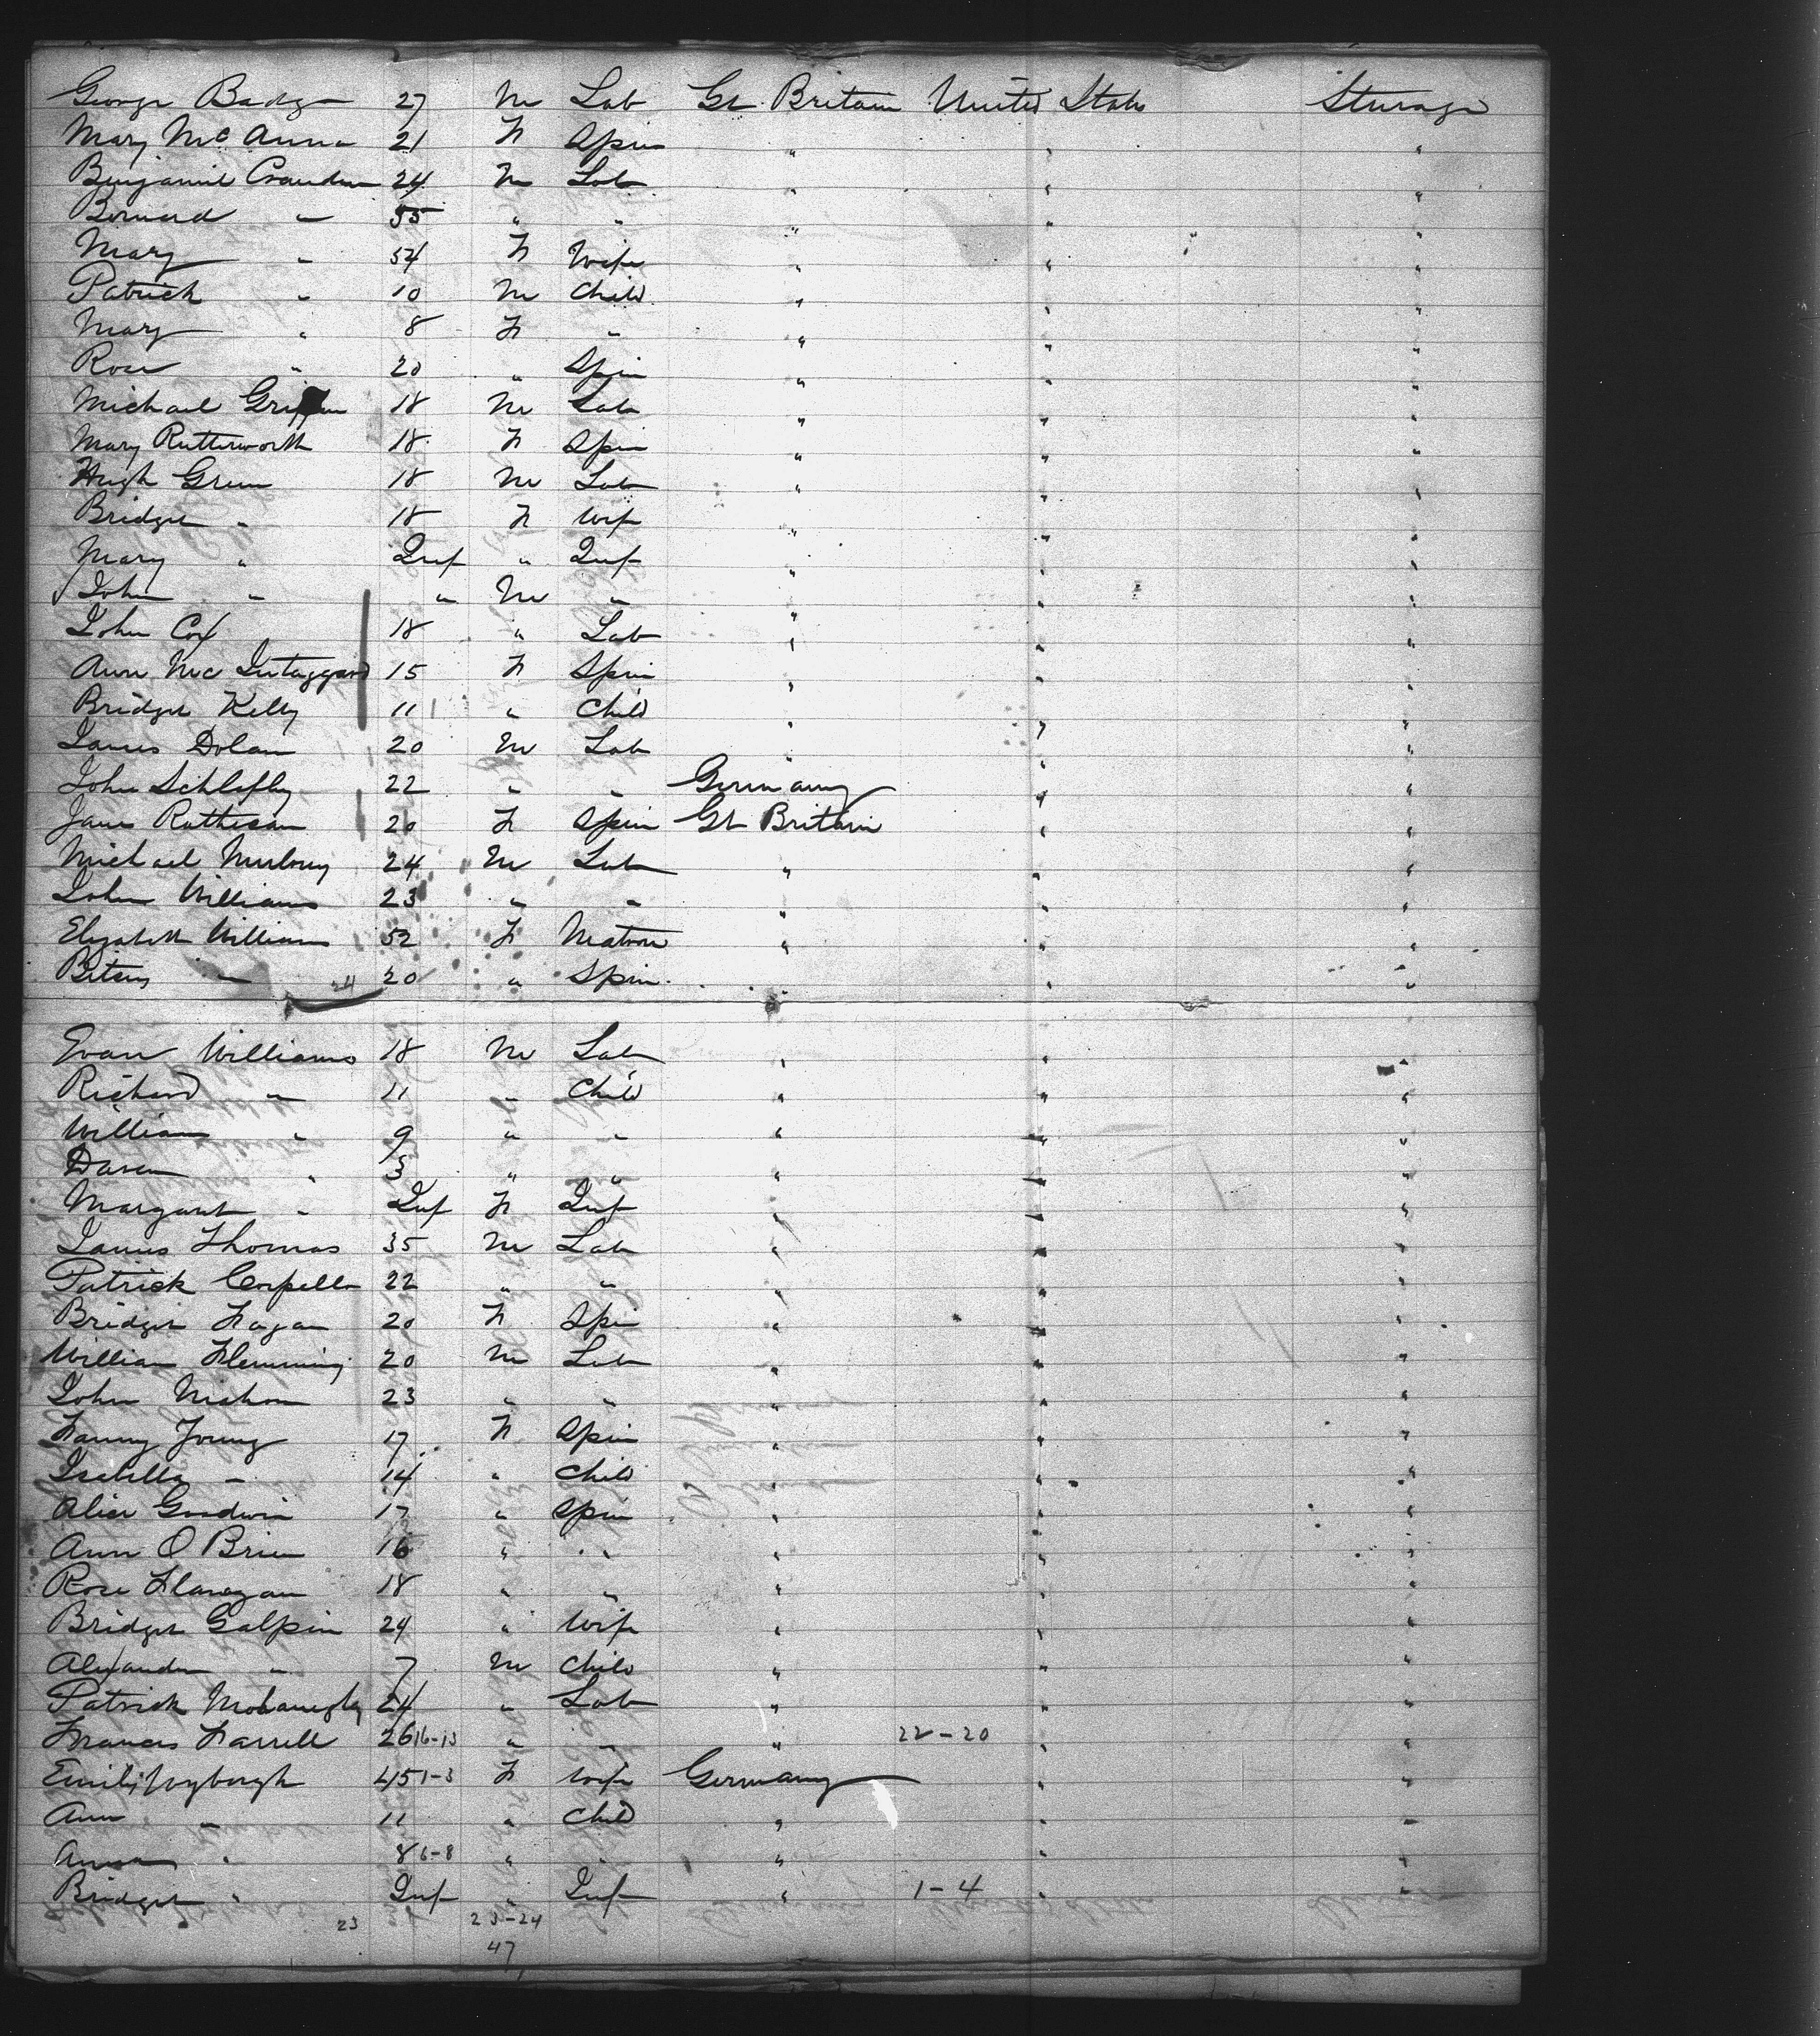 George Badg 27 M Lab Gt Britain United States Sturage
Mary McAnna 21 F Spin " " "
Benjamin 24 M Lab " " "
Bernard " 55 " " " " "
Mary " 54 F Wife " " "
Patrick " 10 M Child " " "
Mary " 8 F " " " "
Rose " 20 " Spin " " "
Michael 18 M Lab " " "
Mary Rutterworth 18 F Spin " " "
Hugh Green 18 M Lab " " "
Bridget " 18 F Wife " " "
Mary " Inf " Inf " " "
John " " M " " " "
John Cox 18 " Lab " " "
Ann Mc 15 F Spin " " "
Bridget Kelly 11 " Child " " "
James Dolan 20 M Lab " " "
John Schlefly 22 " " Germany " "
Jane 20 F Spin Gt Britain " "
Michael 24 M Lab " " "
John Williams 23 " " " " "
Elizabeth Williams 52 F Matron " " "
Betsey " 24 20 " Spin " " "
Evan Williams 18 M Lab " " "
Richard " 11 " Child " " "
William " 9 " " " " "
" 3 " " " " "
Margaret " Inf F Inf " " "
James Thomas 35 M Lab " " "
Patrick 22 " " " " "
Bridget Fagan 20 F Spin " " "
William Flemming 20 M Lab " " "
John 23 " " " " "
Fanny Young 17 F Spin " " "
Isabella " 14 " Child " " "
Alice Goodwin 17 " Spin " " "
Ann O Brien 16 " " " " "
Rose Flanegan 18 " " " " "
Bridget Galpin 24 " Wife " " "
Alexander " 7 M Child " " "
Patrick 24 " Lab " " "
Francis Farrell 26 16-13 " " " 22-20 " "
Emily 45 1-3 F Wife Germany " "
Ann " 11 " Child " " "
Anna " 8 6-8 " " " " "
Bridget " Inf " Inf " 1-4 " "
23 23-24
47